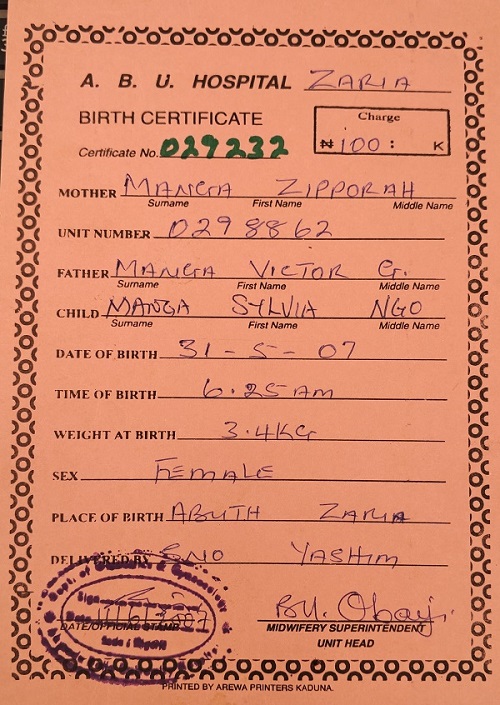 A. B. U. HOSPITAL ZARIA
BIRTH CERTIFICATE
Charge
Certificate No. 029232
₦ 100 : K
MOTHER MANGA ZIPPORAH
Surname First Name Middle Name
UNIT NUMBER 0298862
FATHER MANGA VICTOR G.
Surname First Name Middle Name
CHILD MANGA SYLVIA NGO
Surname First Name Middle Name
DATE OF BIRTH 31 - 5 - 07
TIME OF BIRTH 6.25 AM
WEIGHT AT BIRTH 3.4KG
SEX FEMALE
PLACE OF BIRTH ABUTH ZARIA
DELIVERED BY S/NO YASHIM
Dept. of Obstetrics & Gynaecology
Sign
Date
DATE/OFFICIAL STAMP
MIDWIFERY SUPERINTENDENT
UNIT HEAD
PRINTED BY AREWA PRINTERS KADUNA.